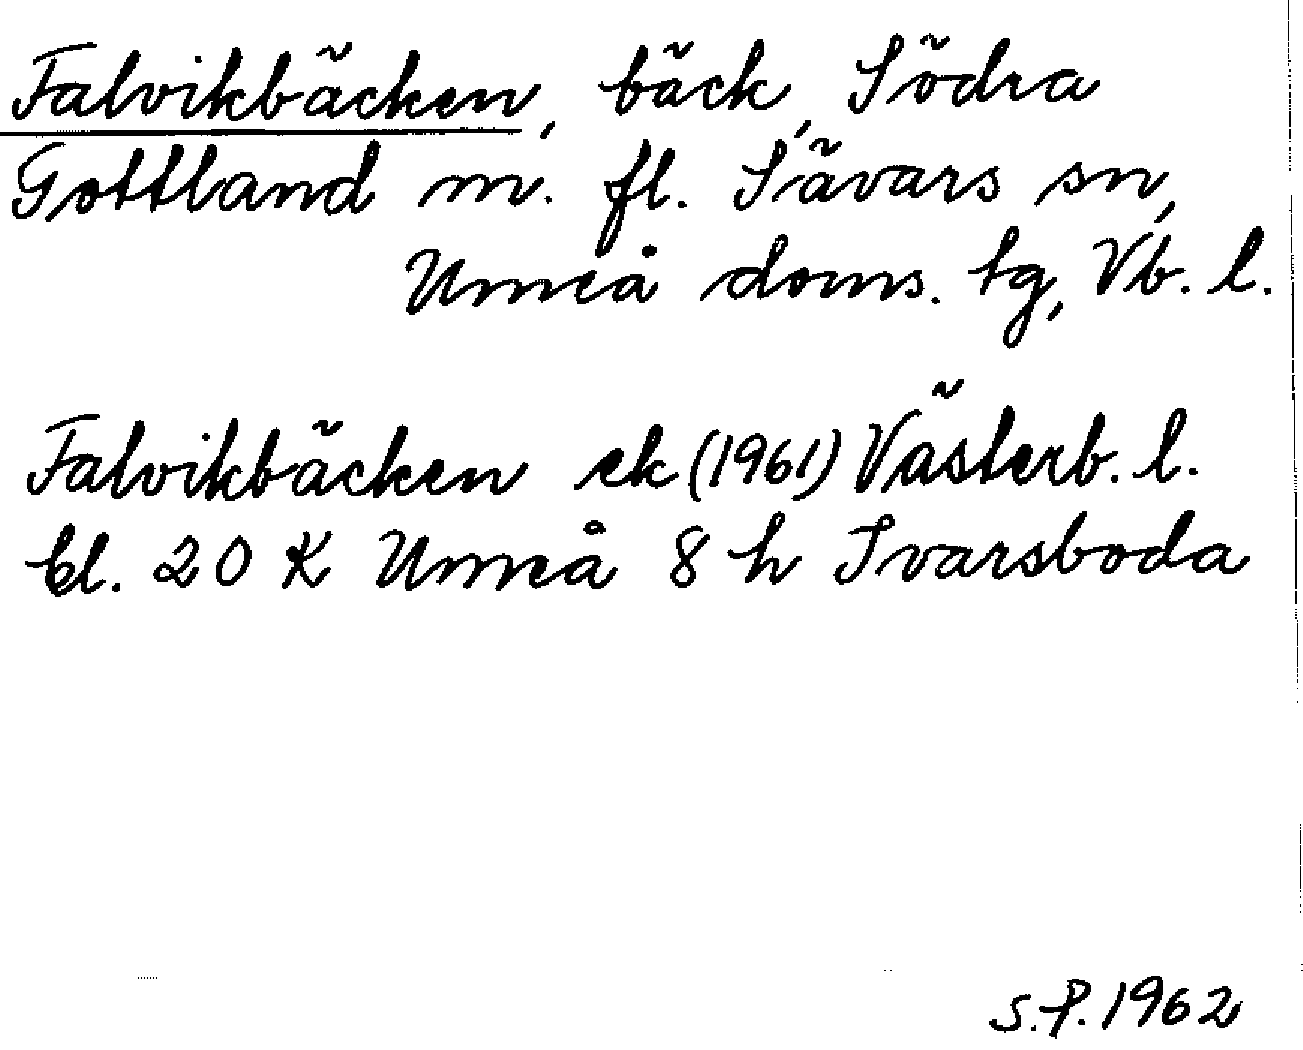 Falvikbäcken, bäck, Södra
Gottland m. fl. Sävars sn,
Umeå doms. tg, Vb. l.
Falvikbäcken ek (1961) Västerb. l.
bl. 20 K Umeå 8 h Ivarsboda
S.P. 1962